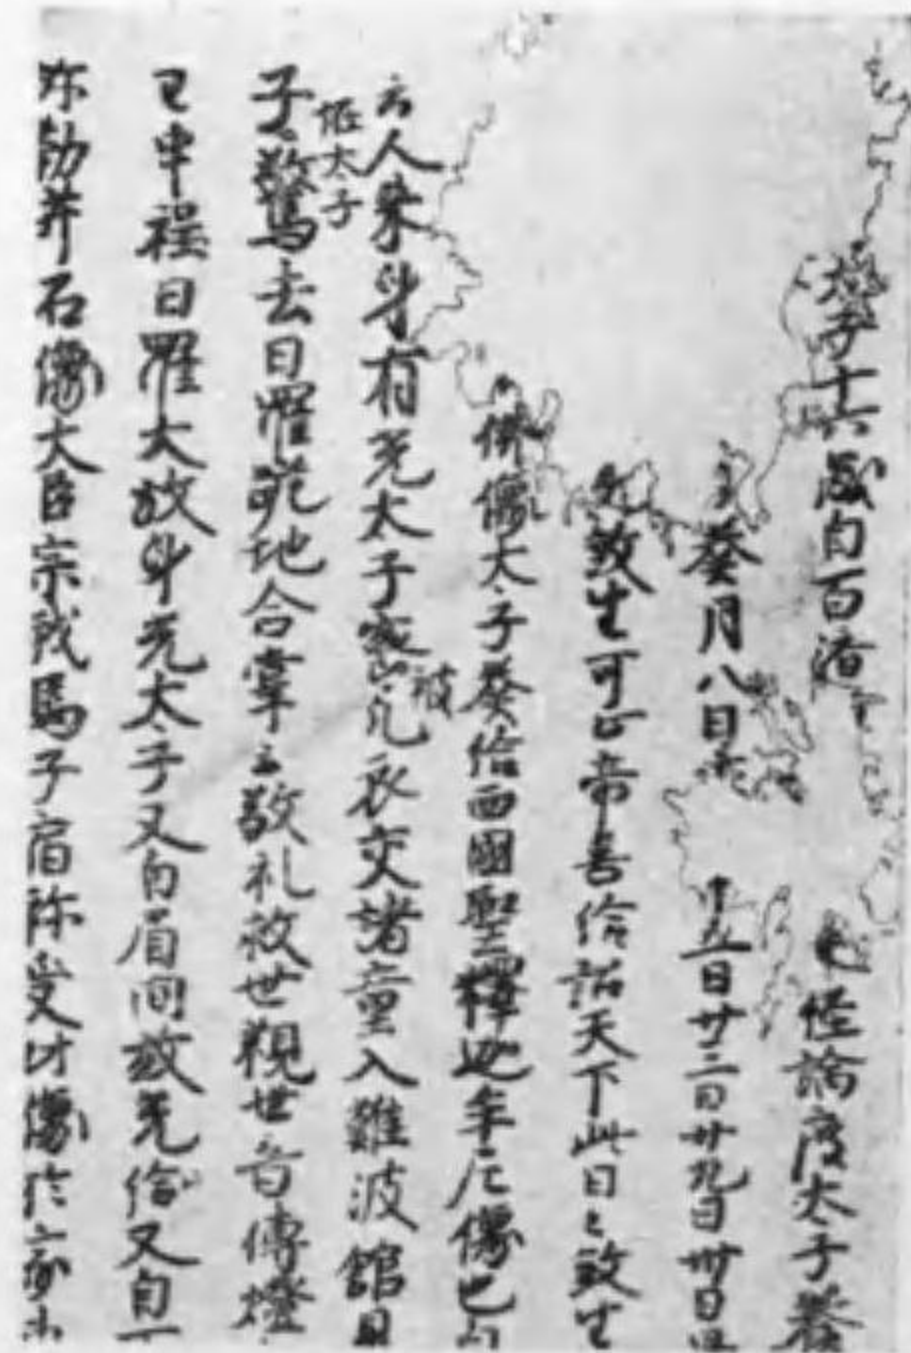 十六歳自百済 經論度太子奏
奏月八日 十五日廿三日廿九日卅日是
煞生可止帝喜給詔天下此日々煞生
佛像太子奏給西國聖釋迦牟尼像也
云人来身有光太子窃被凡衣交諸童入難波館見
怪太子
子驚去日羅跪地合掌云敬礼救世観世音傳燈
申程日羅大放身光太子又自眉間放光給又自百
弥勒并石像大臣宗我馬子宿祢受此像於家